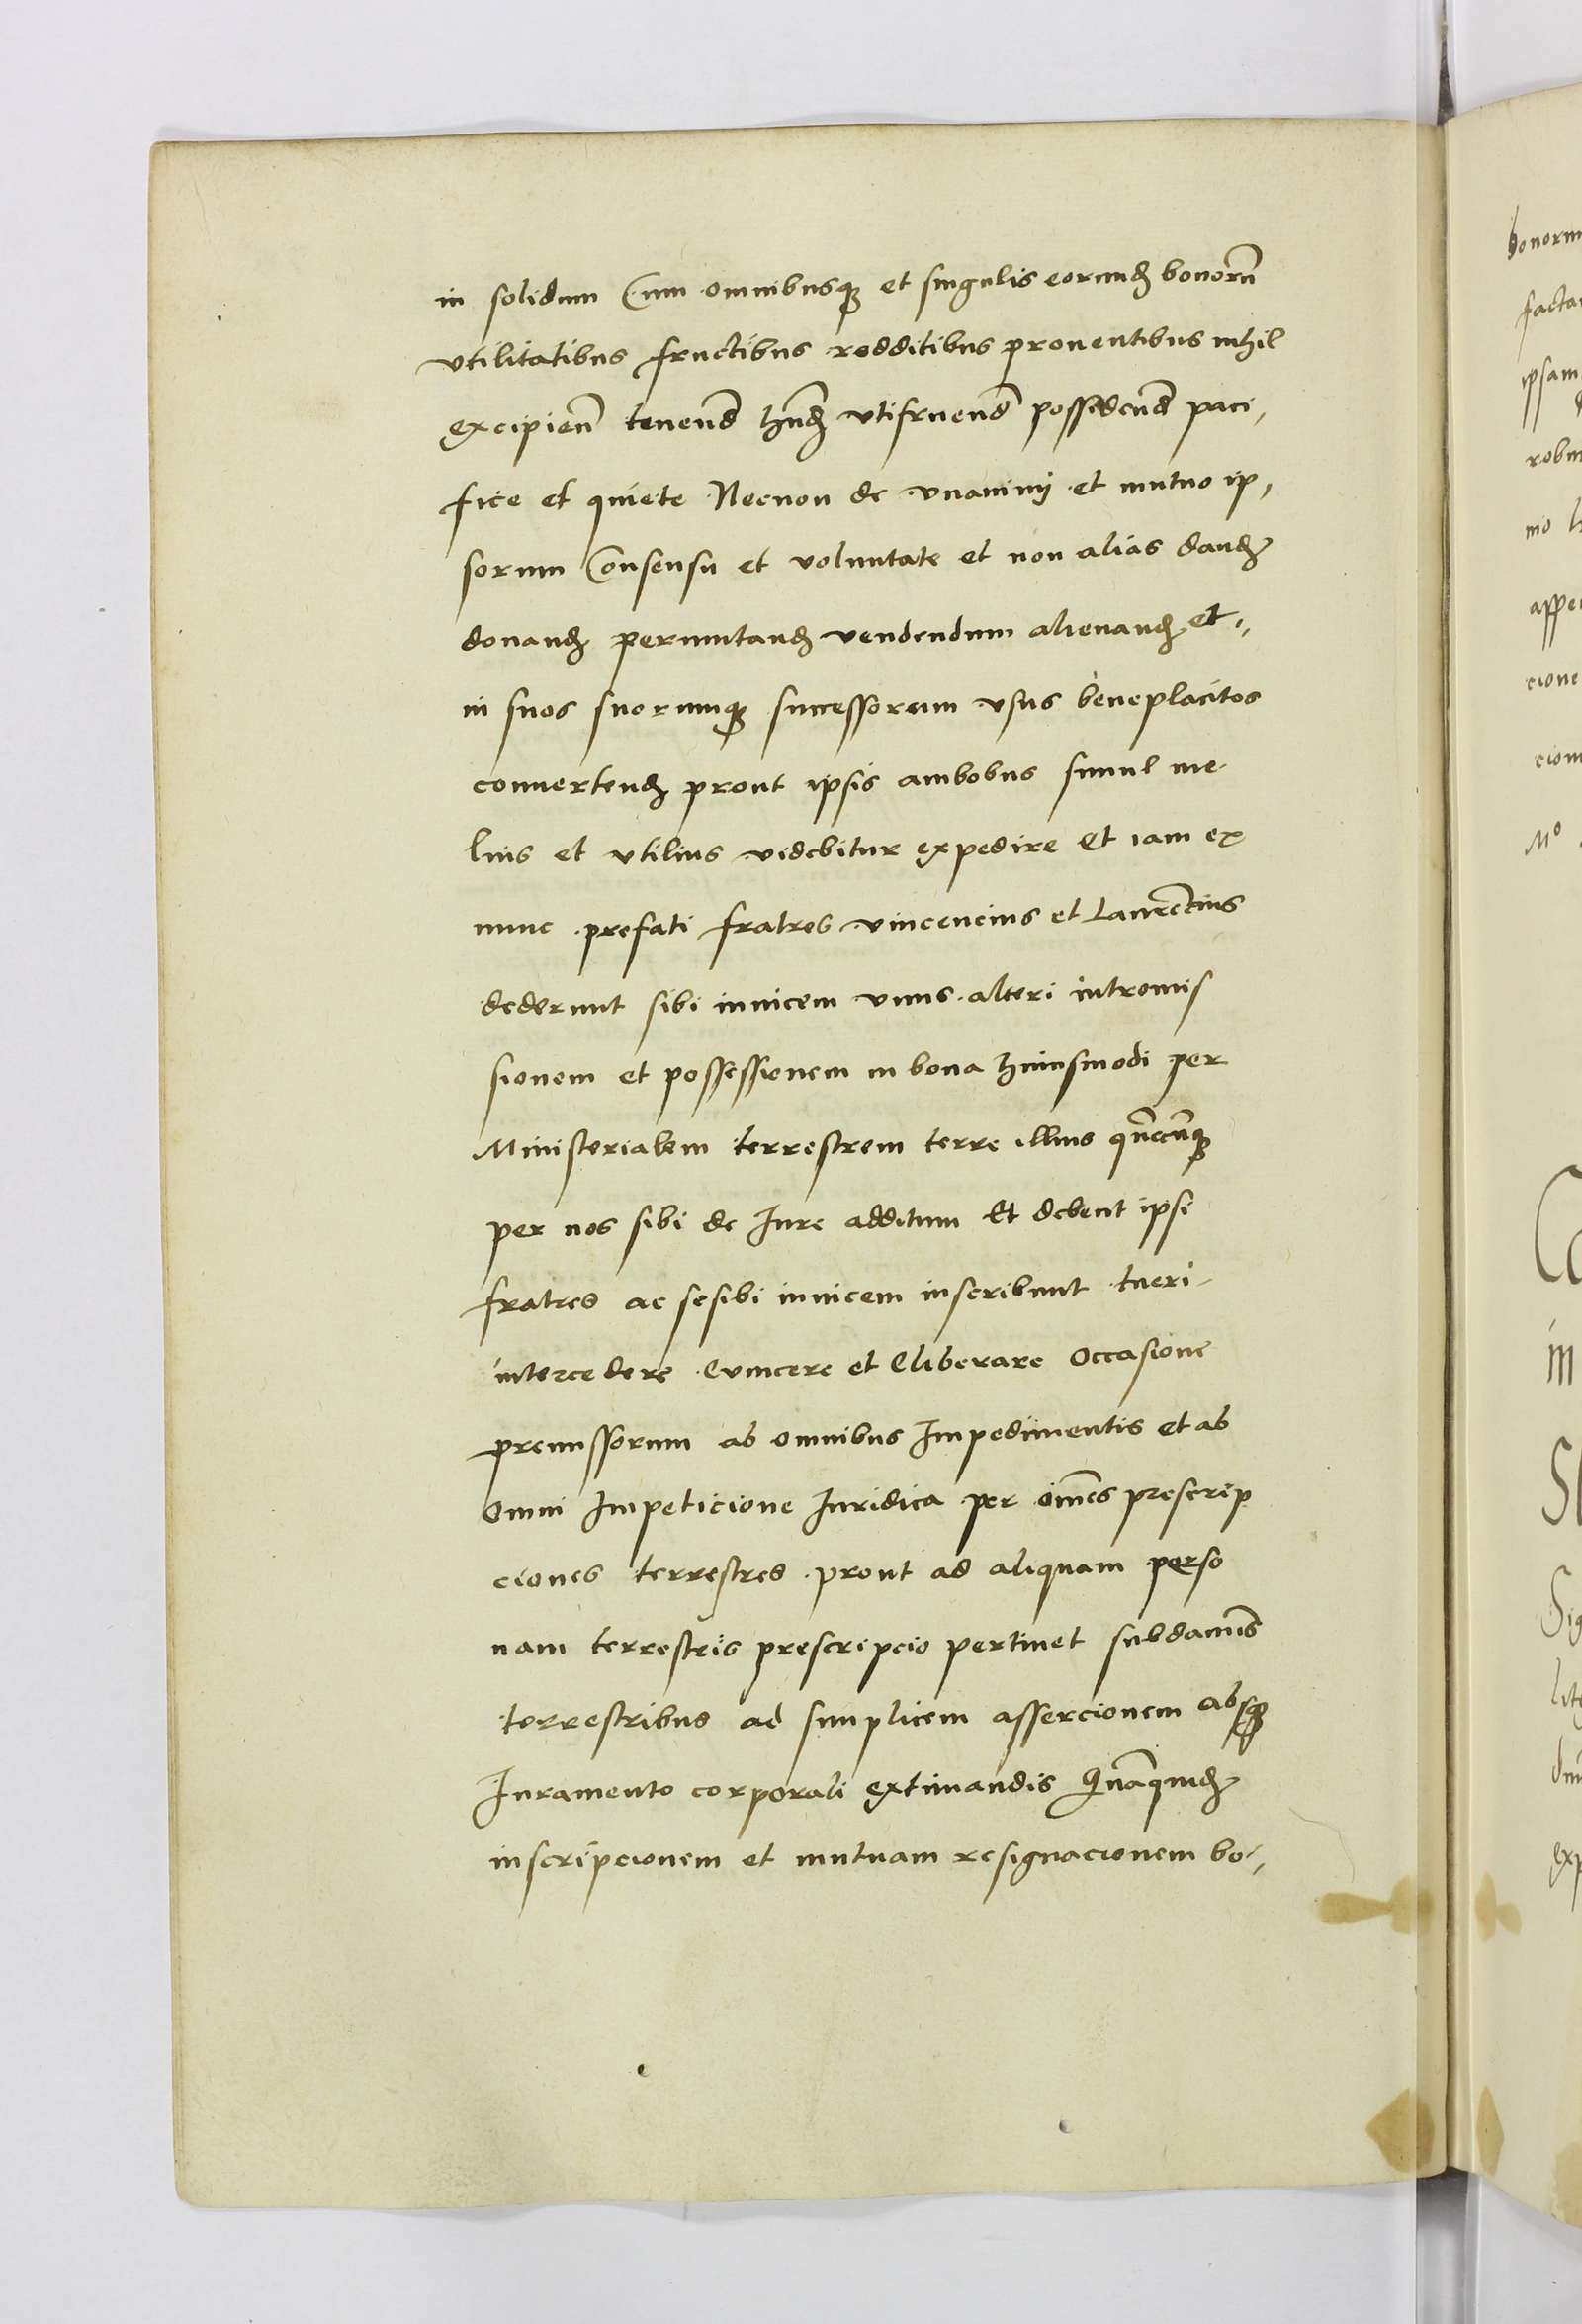 in solidum Cum omnibusq3 et singulis eorund3 bonorū
vtilitatibus fructibus redditibus prouentibus nihil
excipien̄ tenend̄ hn̄d3 vtifruend̄ possidend̄ paci,
fice et quiete Necnon de vnanimj et mutuo ip,
sorum Consensu et voluntate et non alias dand3
donand3 permutand3 vendendum alienand3 et,,
in suos suorumq3 successorum vsus beneplacitos
conuertend3 prout ipsis ambobus simul me
lius et vtilius videbitur expedire Et iam ex
nunc prefati fratres vincencius et Laurēcius
dederunt sibi inuicem vnus alteri intromis
sionem et possessionem in bona huiusmodi per
Ministerialem terrestrem terre illius quēcūq3
per nos sibi de Iure additum Et debent ipsi
fratres ac se sibi inuicem inscribunt tueri
intercedere Euincere et Eliberare Occasione
premissorum ab omnibus Impedimentis et ab
Omni Impeticione Iuridica per om̄es prescrip
ciones terrestres prout ad aliquam perso
nam terrestris prescripcio pertinet sub damnis
terrestribus ad simplicem assercionem absq3
Iuramento corporali extimandis Quāquid3
inscripcionem et mutuam resignacionem bo,
bonorum
facta
ipsam
robur
mo
appe
cione
cion
Mº
Co
in
Sig
lite
exp